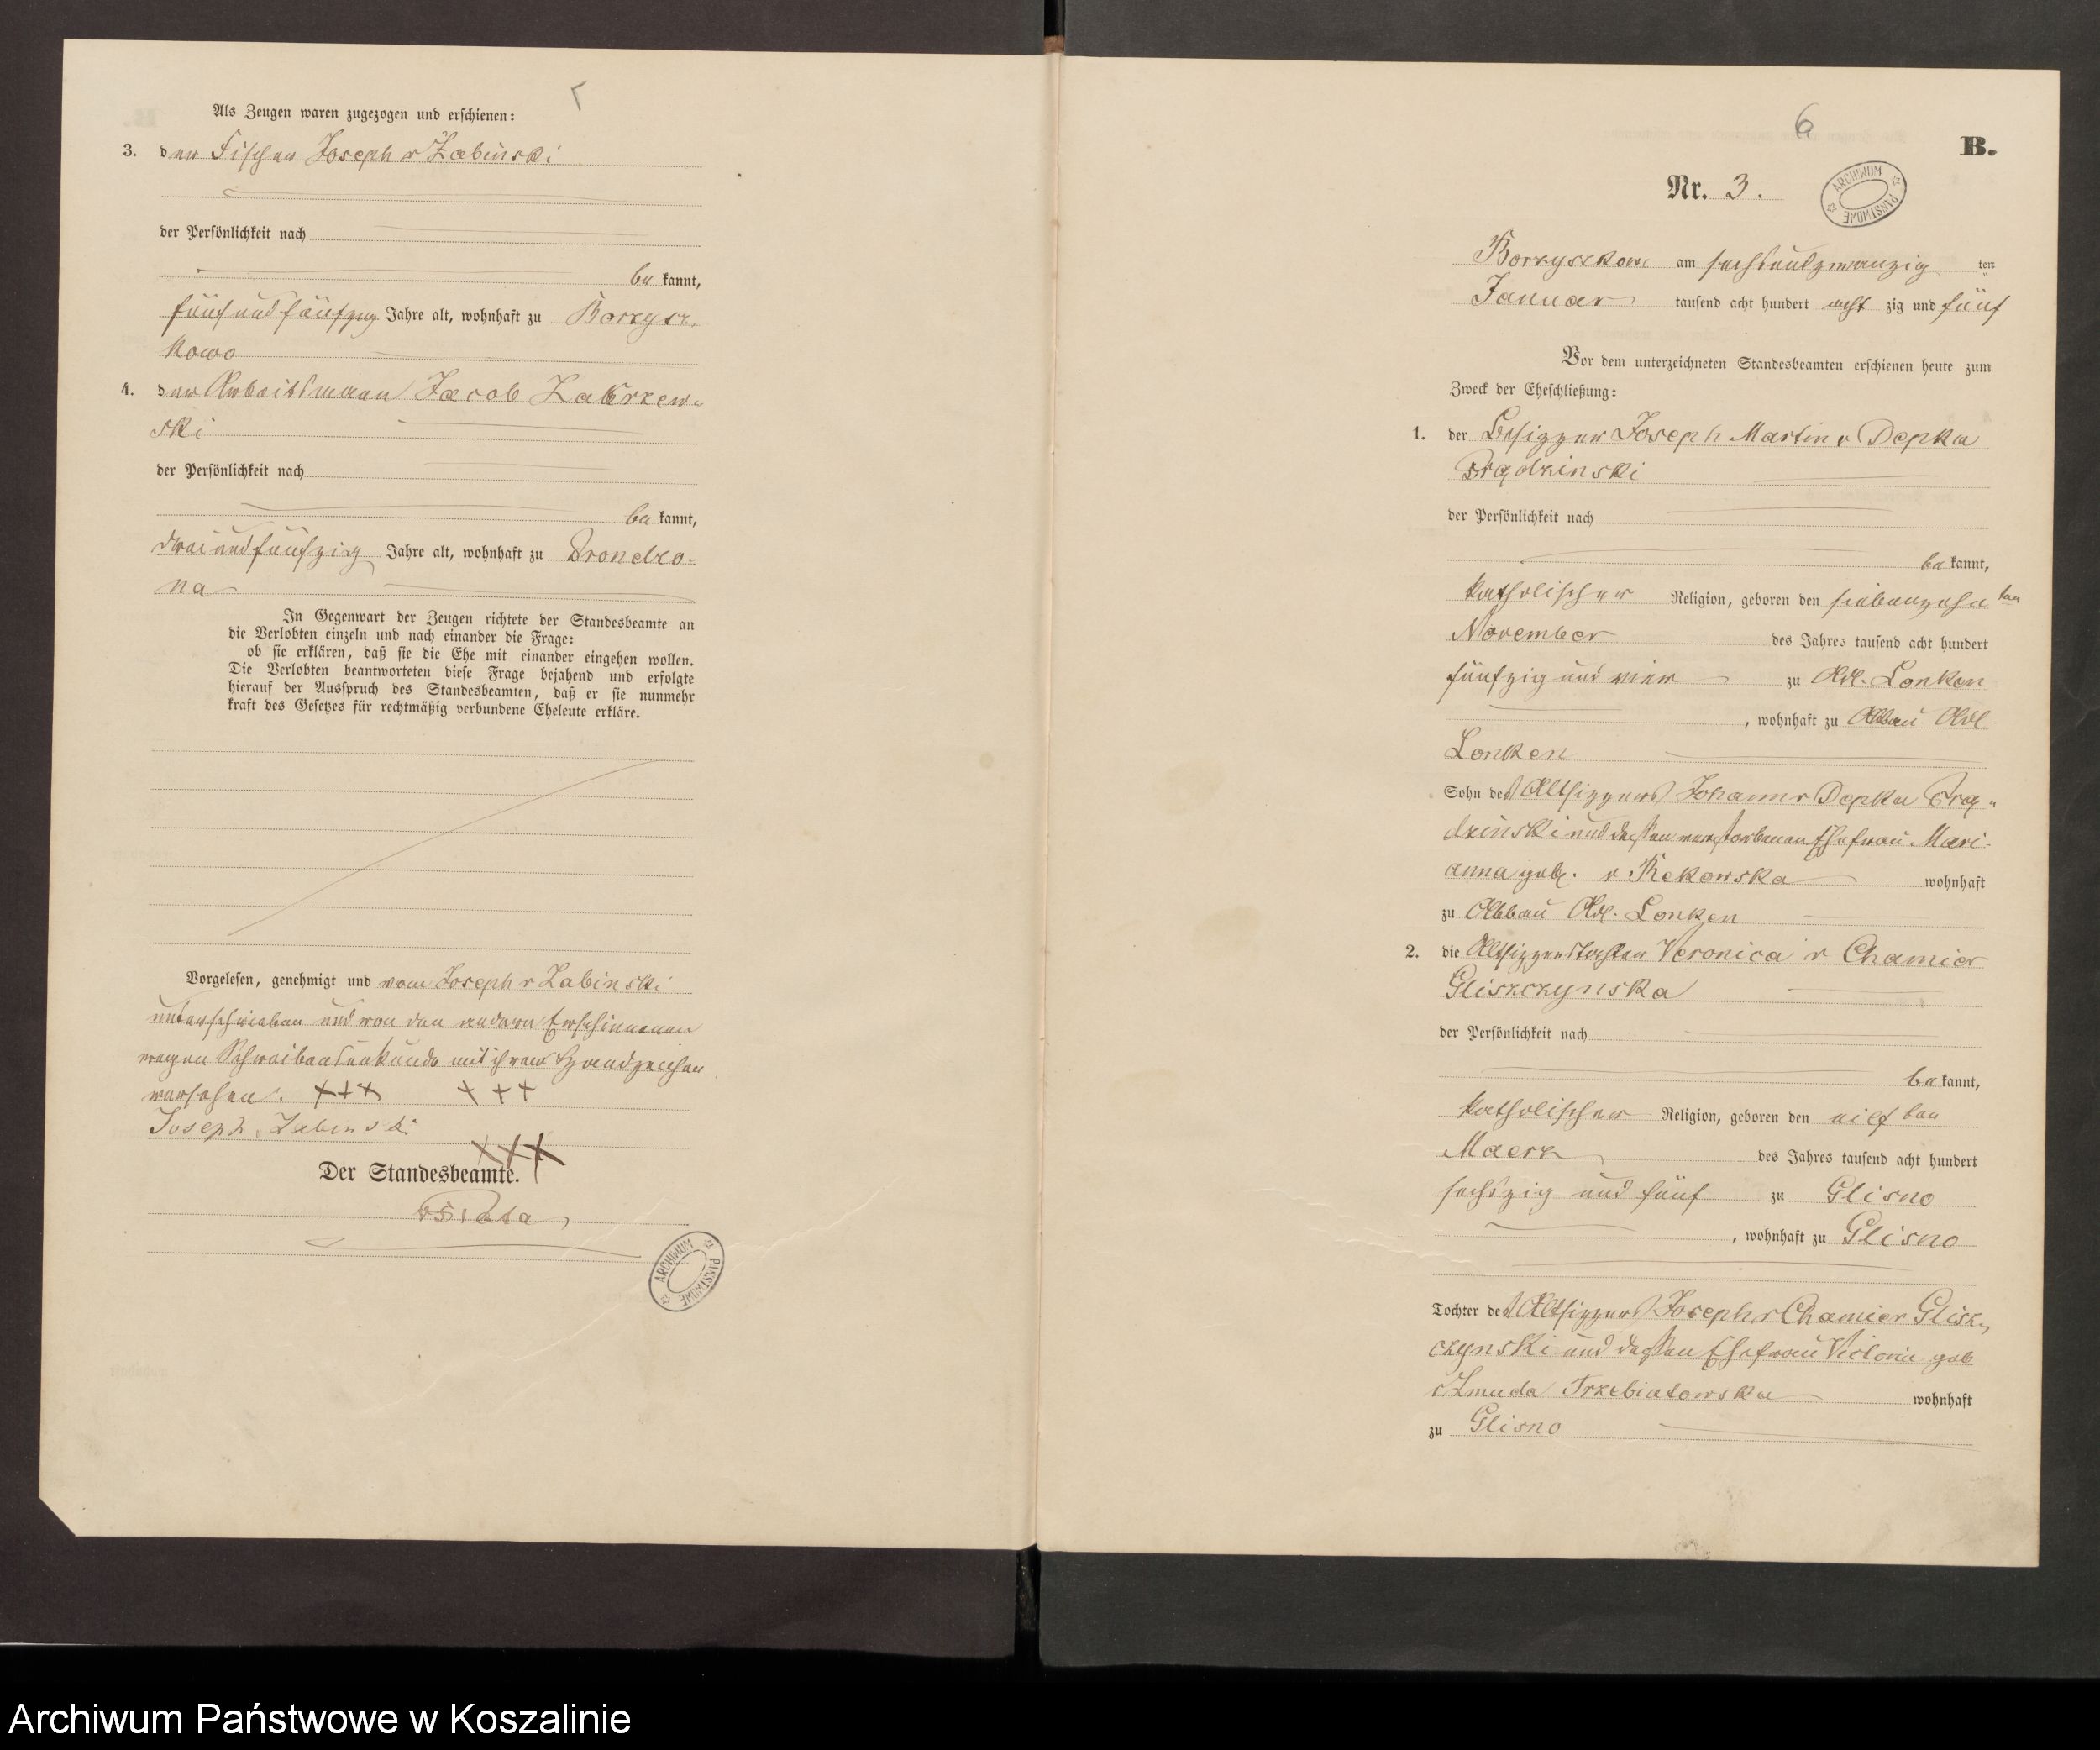 Als Zeugen waren zugezogen und erschienen:
3. der Fischer Joseph v Zabinski
der Persönlichkeit nach
be kannt,
fünf und fünfzig Jahre alt, wohnhaft zu Borzysz-
kowo
4. der Arbeitsmann Jacob Zakrzew-
ski
der Persönlichkeit nach
be kannt,
drei und fünfzig Jahre alt, wohnhaft zu Prondzo-
na
In Gegenwart der Zeugen richtete der Standesbeamte an
die Verlobten einzeln und nach einander die Frage:
ob sie erklären, daß sie die Ehe mit einander eingehen wollen.
Die Verlobten beantworteten diese Frage bejahend und erfolgte
hierauf der Ausspruch des Standesbeamten, daß er sie nunmehr
kraft des Gesetzes für rechtmäßig verbundene Eheleute erkläre.
Vorgelesen, genehmigt und vom Joseph v Zabinski
unterschrieben und von den andern Erschienenen
wegen Schreibensunkunde mit ihrem Handzeichen
versehen. +++ +++
Joseph Zabinski
+++
Der Standesbeamte.
ARCHIWUM PAŃSTWOWE
6
B.
Nr. 3.
ARCHIWUM PAŃSTWOWE
Borzyszkowo am sechsundzwanzig ten
Januar tausend acht hundert acht zig und fünf
Vor dem unterzeichneten Standesbeamten erschienen heute zum
Zweck der Eheschließung:
1. der Besitzer Joseph Martin v Depka
Prądzinski
der Persönlichkeit nach
be kannt,
katholischer Religion, geboren den siebenzehn ten
November des Jahres tausend acht hundert
fünfzig und vier zu Adl. Lonken
, wohnhaft zu Abbau Adl.
Lonken
Sohn des Altsitzers Johann v Depka Prą-
dzinski und dessen verstorbenen Ehefrau Mari-
anna geb. v Kekowska wohnhaft
zu Abbau Adl. Lonken
2. die Altsitzerstochter Veronica v Chamier
Gliszczynska
der Persönlichkeit nach
be kannt,
katholischer Religion, geboren den eilf ten
Maerz des Jahres tausend acht hundert
sechszig und fünf zu Glisno
, wohnhaft zu Glisno
Tochter des Altsitzers Joseph v Chamier Glisz-
czynski und dessen Ehefrau Victoria geb
v Zmuda Trzebiatowska wohnhaft
zu Glisno
Archiwum Państwowe w Koszalinie